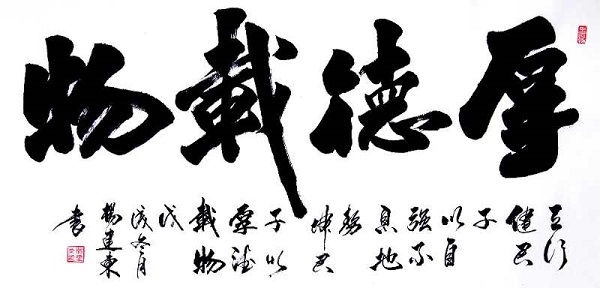 厚德載物
天行
健君
子
以自
強不
息地
勢
坤君
子以
厚德
載物
戊
戌冬月
楊建東
書